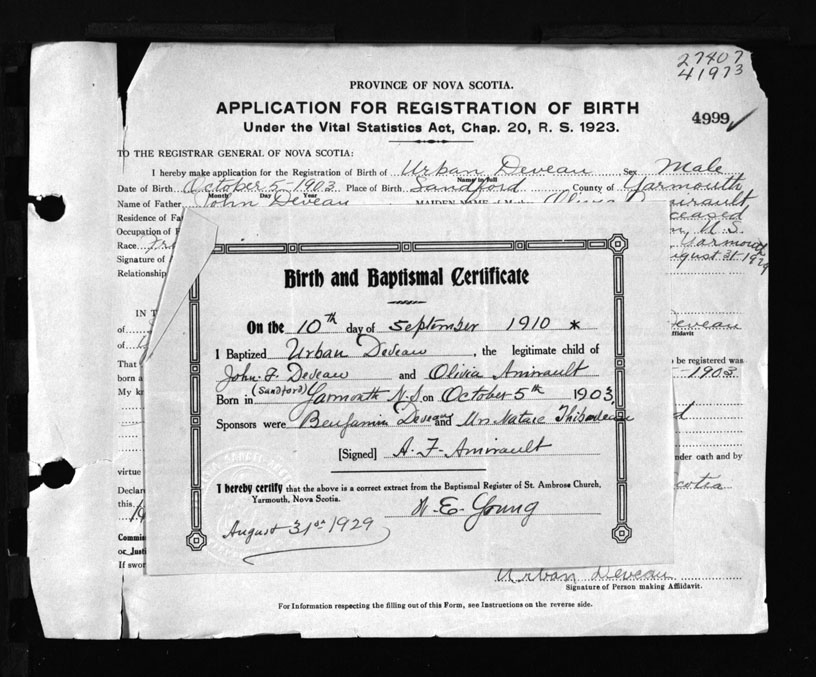 27407
41973
4999
PROVINCE OF NOVA SCOTIA.
APPLICATION FOR REGISTRATION OF BIRTH
Under the Vital Statistics Act, Chap. 20, R. S. 1923.
TO THE REGISTRAR GENERAL OF NOVA SCOTIA:
I hereby make application for the Registration of Birth of Urban Deveau Sex Male
Name in full
Date of Birth October 5 - 1903 Place of Birth Sandford County of Yarmouth
Month Day Year
Name of Father John Deveau MAIDEN NAME of
Residence of Fa
Occupation of F
Race
Signature of
Relationship
Birth and Baptismal Certificate
On the 10th day of September 1910 *
I Baptized Urban Deveau, the legitimate child of
John F Deveau and Olivia Amirault
Born in (Sandford) Yarmouth N.S. on October 5th 1903,
Sponsors were Benjamin Deveau and Mrs Thibodeau
[Signed] A. F. Amirault
I hereby certify that the above is a correct extract from the Baptismal Register of St. Ambrose Church,
Yarmouth, Nova Scotia.
N. E. Young
August 31st 1929
be registered was
1903
nder oath and by
cotia
IN T
of
of
That
born a
My kn
virtue
Declar
this
Commis
or Justi
If swor
Urban Deveau
Signature of Person making Affidavit.
For Information respecting the filling out of this Form, see Instructions on the reverse side.